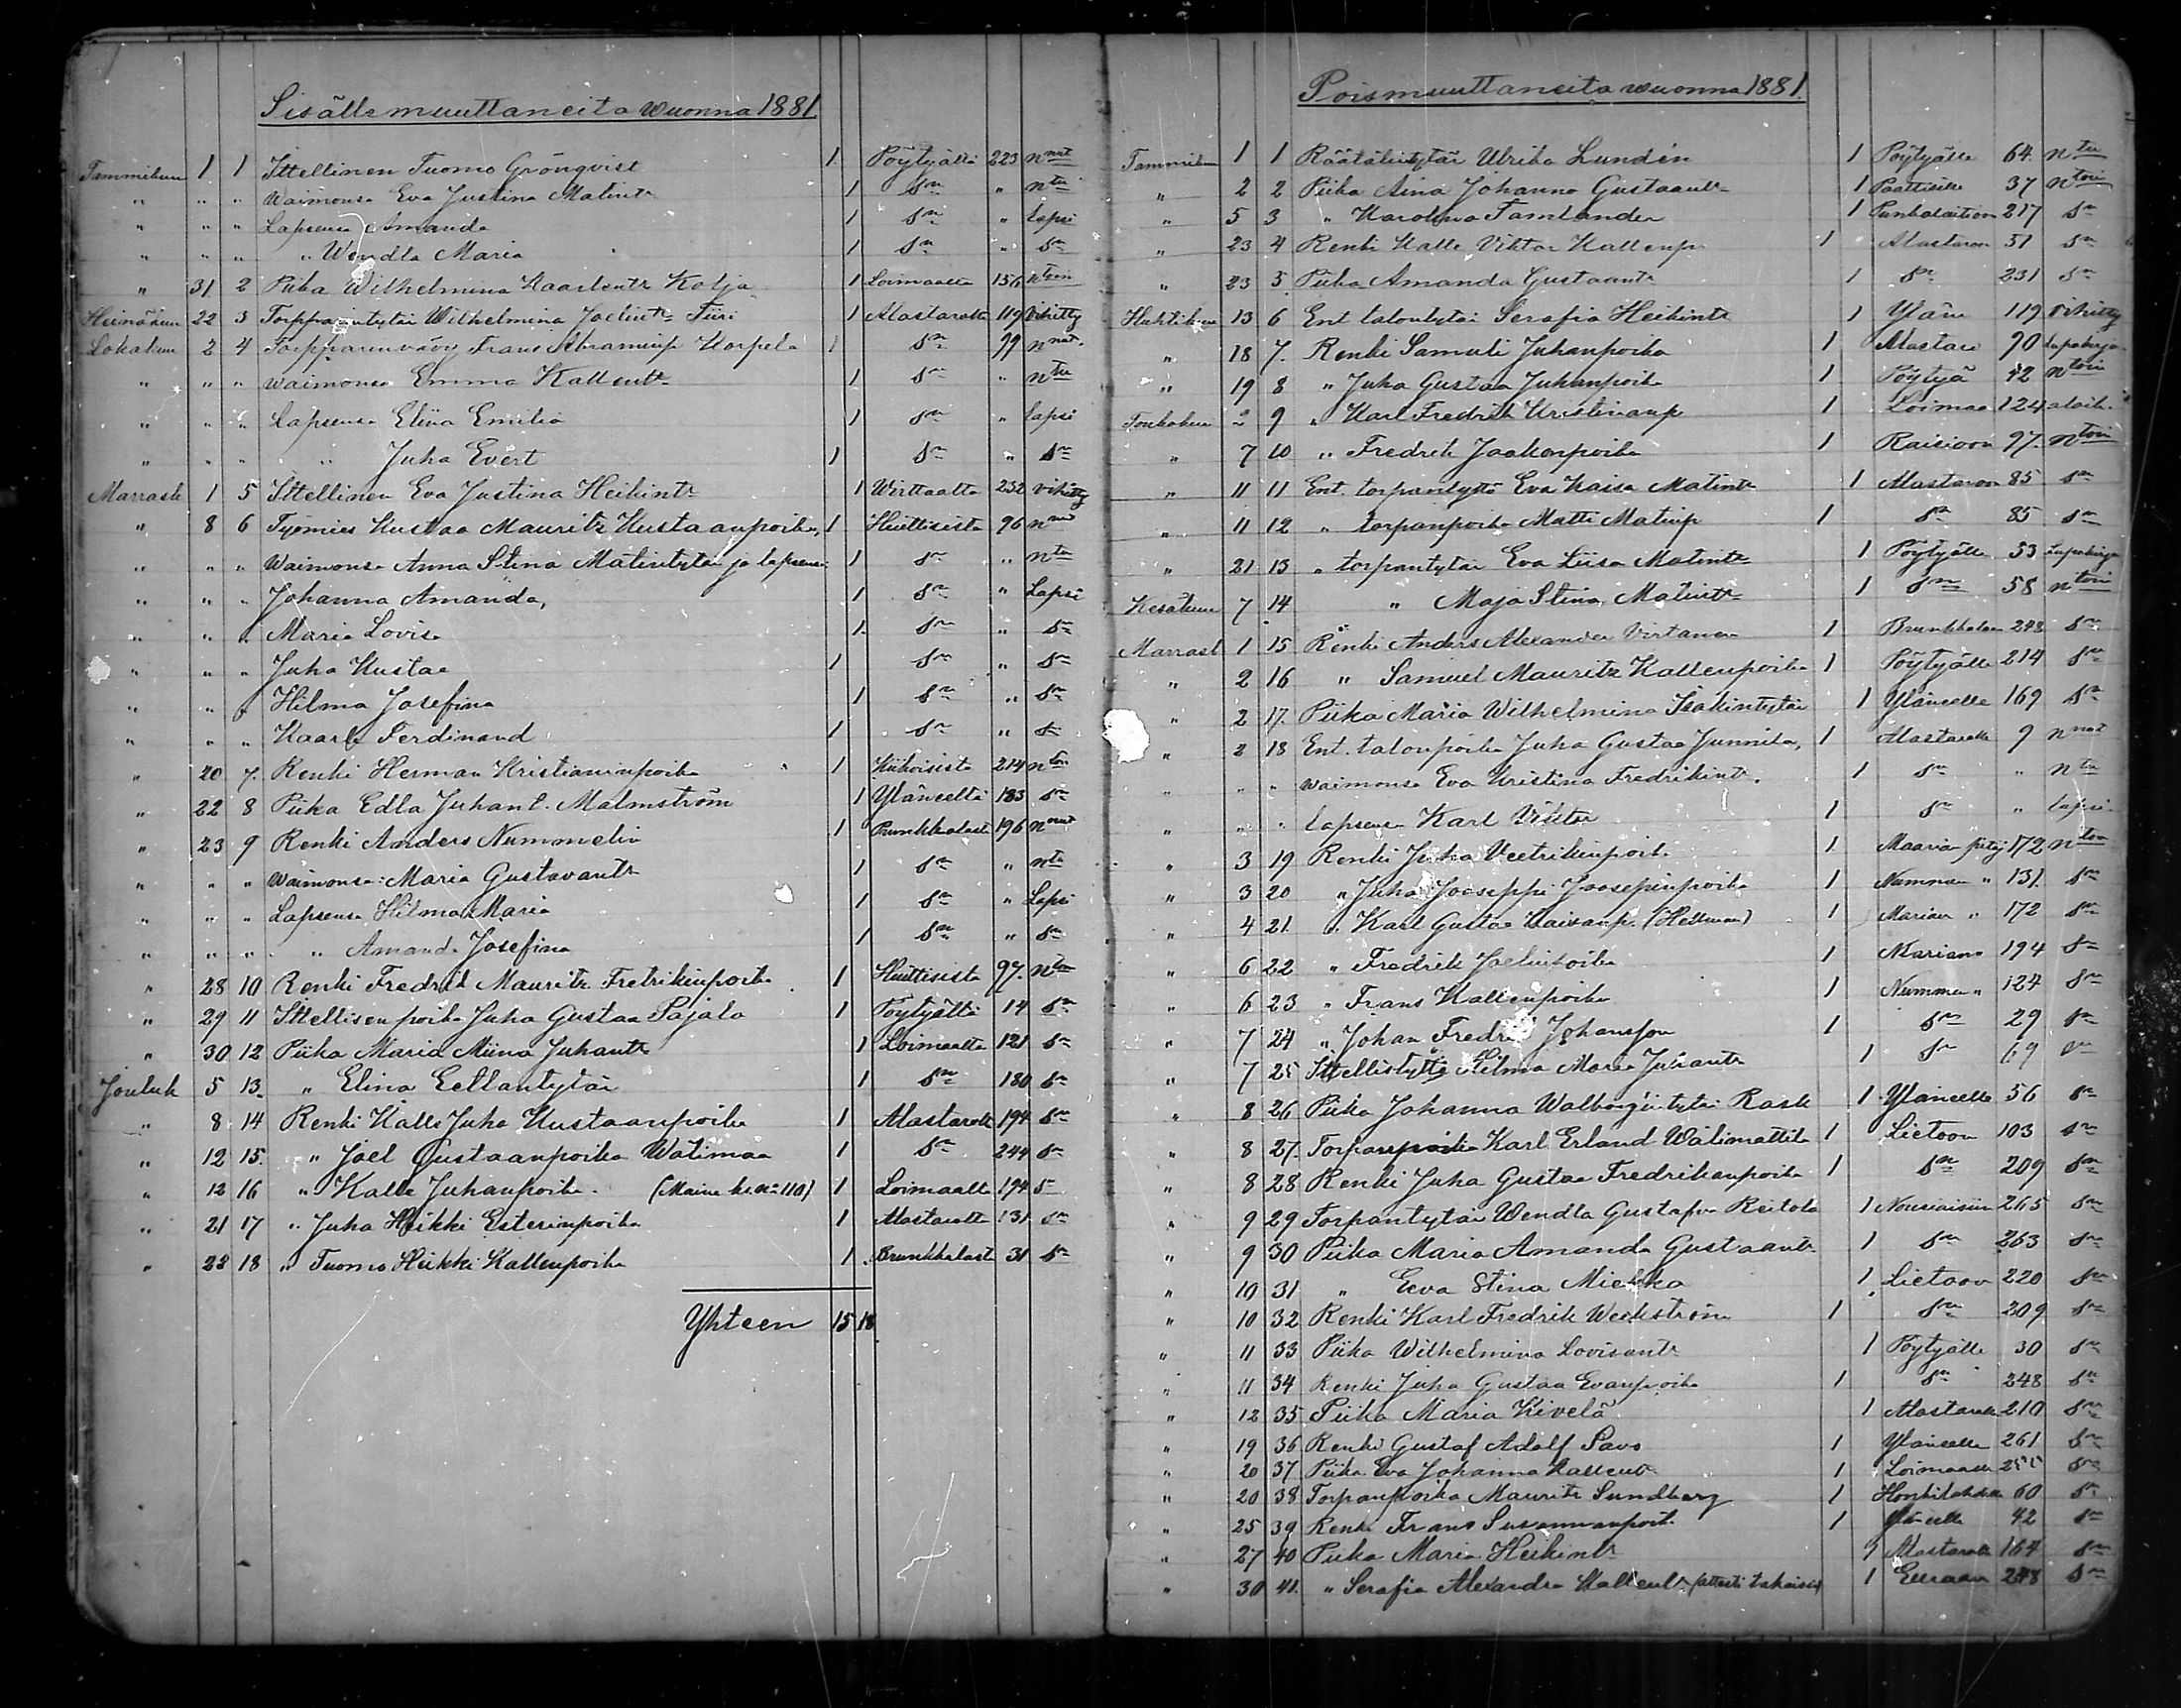 Sisälle muuttaneita wuonna 1881
Tammikuu 1 1 Ittellinen Tuomo Grönqvist 1 Pöytyältä 223 nnut
" " " Waimonsa Eva Justina Matint: 1 Sn " ntu
" " " Lapsensa Amanda 1 Sn " lapsi
" " " " Wendla Maria 1 Sn " Sn
" 31 2 Piika Wilhelmina Kaarlentr Kotja 1 Loimaalta 156 ntoin
Heinäkuu 22 3 Torpparintytär Wilhelmina Joelintr Tiiri 1 Alastarolta 119 Vihitty
Lokakuu 2 4 Torpparinvävy Frans Korpela 1 Sn 99 nnut
" " " waimonsa Emma Kallentr 1 Sn " ntu
" " " Lapsensa Eliina Emilia 1 Sn " lapsi
" " " " Juha Evert 1 Sn " Sn
Marrask 1 5 Ittellinen Eva Justina Heikintr 1 Wirttaalta 232 vihitty
" 8 6 Työmies Kustaa Mauritz Kustaanpoika, 1 Huittisista 96 nnut
" " " Waimonsa Anna Stina Matintytär ja lapsensa 1 Sn " ntu
" " " Johanna Amanda, 1 Sn " Lapsi
" " " Maria Lovisa 1 Sn " Sn
" " " Juha Kustaa 1 Sn " Sn
" " " Hilma Josefina 1 Sn " Sn
" " " Kaarle Ferdinand 1 Sn " Sn
" 20 7. Renki Herman Kristianinpoika 1 Kiikoisista 214 nton
" 22 8 Piika Edla Juhant. Malmström 1 Yläneeltä 183 Sn
" 23 9 Renki Anders Nummelin 1 Prunkkalasta 196 nnut
" " " Waimonsa: Maria Gustavantr 1 Sn " ntu
" " " Lapsensa Hilma Maria 1 Sn " Lapsi
" " " " Amanda Josefina 1 Sn " Sn
" 28 10 Renki Fredrik Mauritz Fretrikinpoika 1 Huittisista 97. nton
" 29 11 Ittellisenpoika Juha Gustaa Pajala 1 Pöytyältä 14 Sn
" 30 12 Piika Maria Miina Juhantr 1 Loimaalta 121 Sn
Jouluk 5 13. " Elina Eellantytär 1 Sn 180 Sn
" 8 14 Renki Kalle Juha Kustaanpoika 1 Alastarolt 194 Sn
" 12 15. " Joel Gustaanpoika Watimaa 1 Sn 244 Sn
" 12 16 " Kalle Juhanpoika. 1 Loimaalta 194 Sn
" 21 17 " Juha Heikki Esterinpoika 1 Alastarolta 131 Sn
" 22 18 " Tuomo Heikki Kallenpoika 1 Prunkkalast 31 Sn
Yhteen 15 18
Poismuuttaneita wuonna 1881.
Tammikuu 1 1 Räätälintytär Ulrika Lundén 1 Pöytyälle 64. ntu
" 2 2 Piika Aina Johanna Gustaantr 1 Paattisille 37 ntoin
" 5 3 " Karolina Tamlander 1 Punkalaition 217 Sn
" 23 4 Renki Kalle Viktor Kallenp 1 Alastaron 51 Sn
" 23 5 Piika Amanda Gustaantr 1 Sn 231 Sn
Huhtikuu 13 6 Ent. talontytär Serafia Heikintr 1 Yläne 119 Vihitty
" 18 7. Renki Samuli Juhanpoika 1 Alastaro 90 Lupakirja
" 19 8 " Juha Gustaa Juhanpoika 1 Pöytyä 42 ntoin
Toukokuu 2 9 " Karl Fredrik Kristinanp 1 Loimaa 124 alaik.
" 7 10 " Fredrik Jaakonpoika 1 Raisioon 97. ntoin
" 11 11 Ent. torpantyttö Eva Kaisa Matintr 1 Alastaron 85 Sn
" 11 12 " torpanpoika Matti Matinp 1 Sn 85 Sn
" 21 13 " torpantytär Eva Liisa Matintr 1 Pöytyälle 53 Lupakirja
Kesäkuu 7 14 " Maja Stina Matintr 1 Sn 58 ntoin
Marrask 1 15 Renki Anders Alexander Virtanen 1 Prunkkalan 248 Sn
" 2 16 " Samuel Mauritz Kallenpoika 1 Pöytyälle 214 Sn
" 2 17. Piika Maria Wilhelmina Isakintytär 1 Yläneelle 169 Sn
" 2 18 Ent. talonpoika Juha Gustaa Junnila, 1 Alastarolle 9 nnut
" " waimonsa Eva Kristina Fredrikintr. 1 Sn " ntu
" " " lapsensa Karl Viktor 1 Sn " lapsi
" 3 19 Renki Juha Veetrikinpoika 1 Maarian pitäj 172 nton
" 3 20 " Juha Jooseppi Joosepinpoika 1 Nummen " 131. Sn
" 4 21. " Karl Gustaa Kaisanp. (Hellman) 1 Marian " 172 Sn
" 6 22 " Fredrik Joelinpoika 1 Marian " 194 Sn
" 6 23 " Frans Kallenpoika 1 Nummen " 124 Sn
" 7 24 " Johan Fredrik Johansson 1 Sn 29 Sn
" 7 25 Ittellistyttö Hilma Maria Juhantr 1 Sn 69 Sn
" 8 26 Piika Johanna Walborgintytär Rask 1 Yläneelle 56 Sn
" 8 27. Torpanpoika Karl Erland Wälimattila 1 Lietoon 103 Sn
" 8 28 Renki Juha Gustaa Fredrikanpoika 1 Sn 209 Sn
" 9 29 Torpantytär Wendla Gustafva Reitola 1 Nousiaisiin 265 Sn
" 9 30 Piika Maria Amanda Gustaantr 1 Sn 263 Sn
" 10 31 " Eeva Stina Miekka 1 Lietoon 220 Sn
" 10 32 Renki Karl Fredrik Weckström 1 Sn 209 Sn
" 11 33 Piika Wilhelmina Lovisantr 1 Pöytyälle 30 Sn
" 11 34 Renki Juha Gustaa Evanpoika 1 Sn 248 Sn
" 12 35 Piika Maria Kivelä 1 Alastarolle 210 Sn
" 19 36 Renki Gustaf Adolf Savo 1 Yläneelle 261 Sn
" 20 37 Piika Eva Johanna Kallentr 1 Loimaalle Sn
" 20 38 Torpanpoika Mauritz Sundberg 1 60 Sn
" 25 39 Renki Frans Susannanpoik. 1 Yläneelle 42 Sn
" 27 40 Piika Maria Heikintr 1 Alastarolle 164 Sn
" 30 41. " Serafia Alexandra Kallentr (attesti takaisin) 1 Euraan 248 Sn